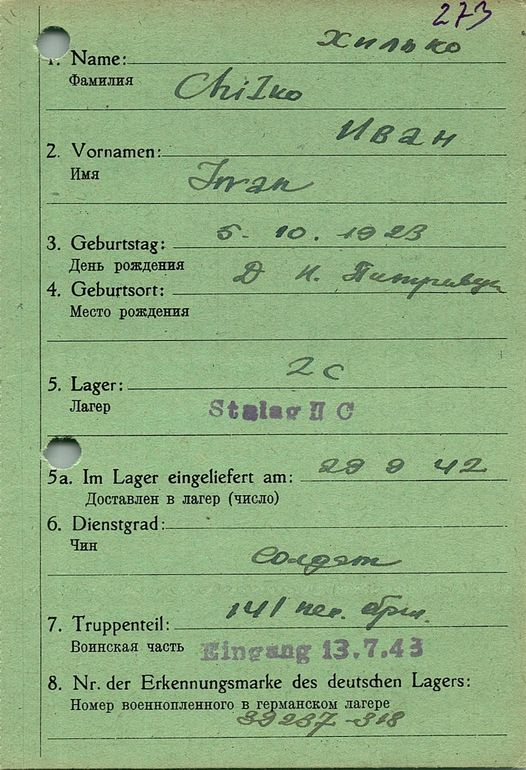 273
Хилько
1. Name:
Фамилия
Chilko
Иван
2. Vornamen:
Имя
Iwan
3. Geburtstag: 5. 10. 1923
День рождения
Д. Н.
4. Geburtsort:
Место рождения
2 С
5. Lager:
Лагер
Stalag II C
5a. Im Lager eingeliefert am: 29 9 42
Доставлен в лагер (число)
6. Dienstgrad:
Чин
солдат
141
7. Truppenteil:
Воинская часть
Eingang 13.7.43
8. Nr. der Erkennungsmarke des deutschen Lagers:
Номер военнопленного в германском лагере
39237-318